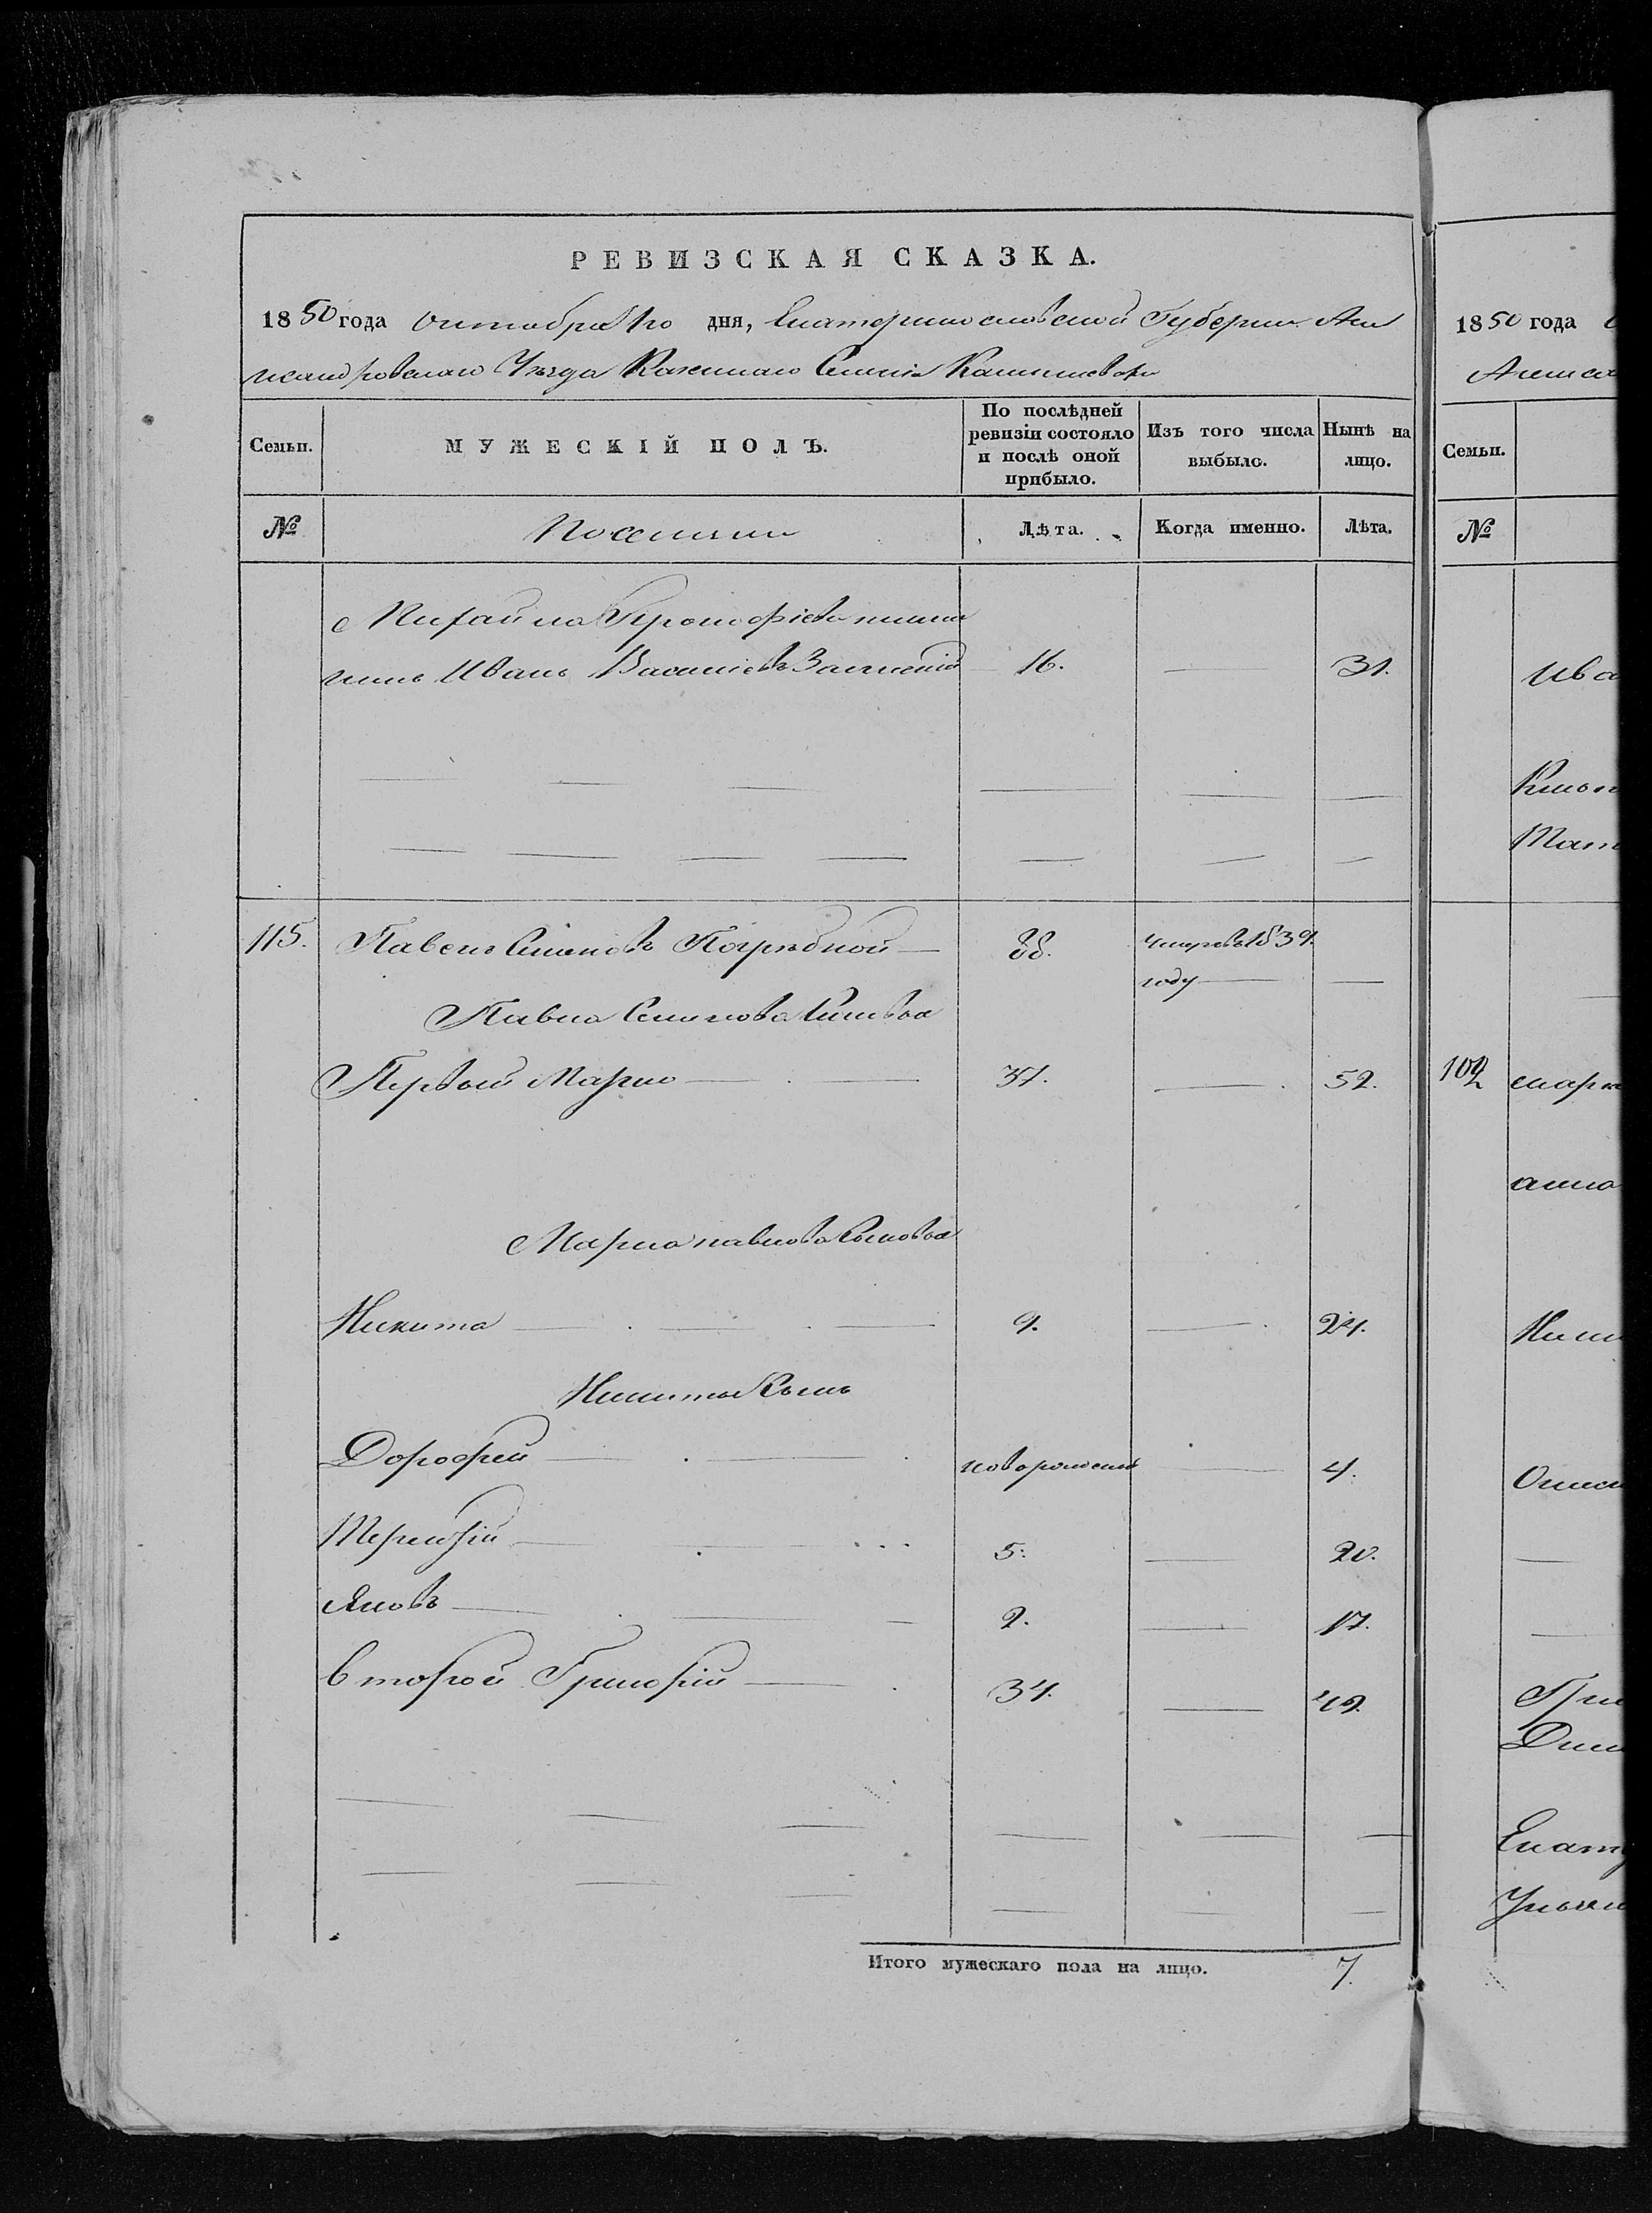 РЕВИЗСКАЯ СКАЗКА.
1850 года Октобра 1го дня, Екатеринославской Губернии Але
ксандровского Уезда Казеннаго Селенія
Семьи.
МУЖЕСКІЙ ПОЛЪ.
По послѣдней ревизіи состояло и послѣ оной прибыло.
Изъ того числа выбыло.
Нынѣ на лицо.
№
Поселяни
Лѣта.
Когда именно.
Лѣта.
Михайла Прокофіева
Иванъ Василіевъ 16. — 31.
115. Павелъ Семеновъ Погрѣбной — 88. Умеръ въ 1839.
году — —
Павла Семенова Сыновья
Первый Марко — 37. — 52.
Марка павлова Сыновья
Никита — 9. — 24.
Никиты Сынъ
Дорофей — новорожденъ — 4.
Терентій — 5. — 20.
Яковъ — 2. — 17.
Второй Григорій — 34. — 49.
Итого мужескаго пола на лицо. 7.
1850 года
Алекса
Семьи.
№
Ива
Мат
102
анна
Гри
Екате
Улья